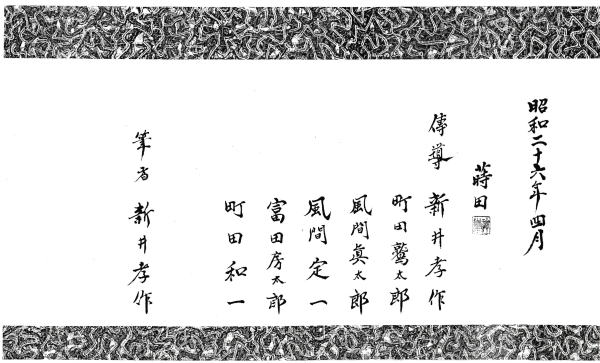 昭和二十六年四月
蒔田
傳導 新井孝作
町田鷲太郎
風間眞太郎
風間定一
富田房太郎
町田和一
筆者 新井孝作